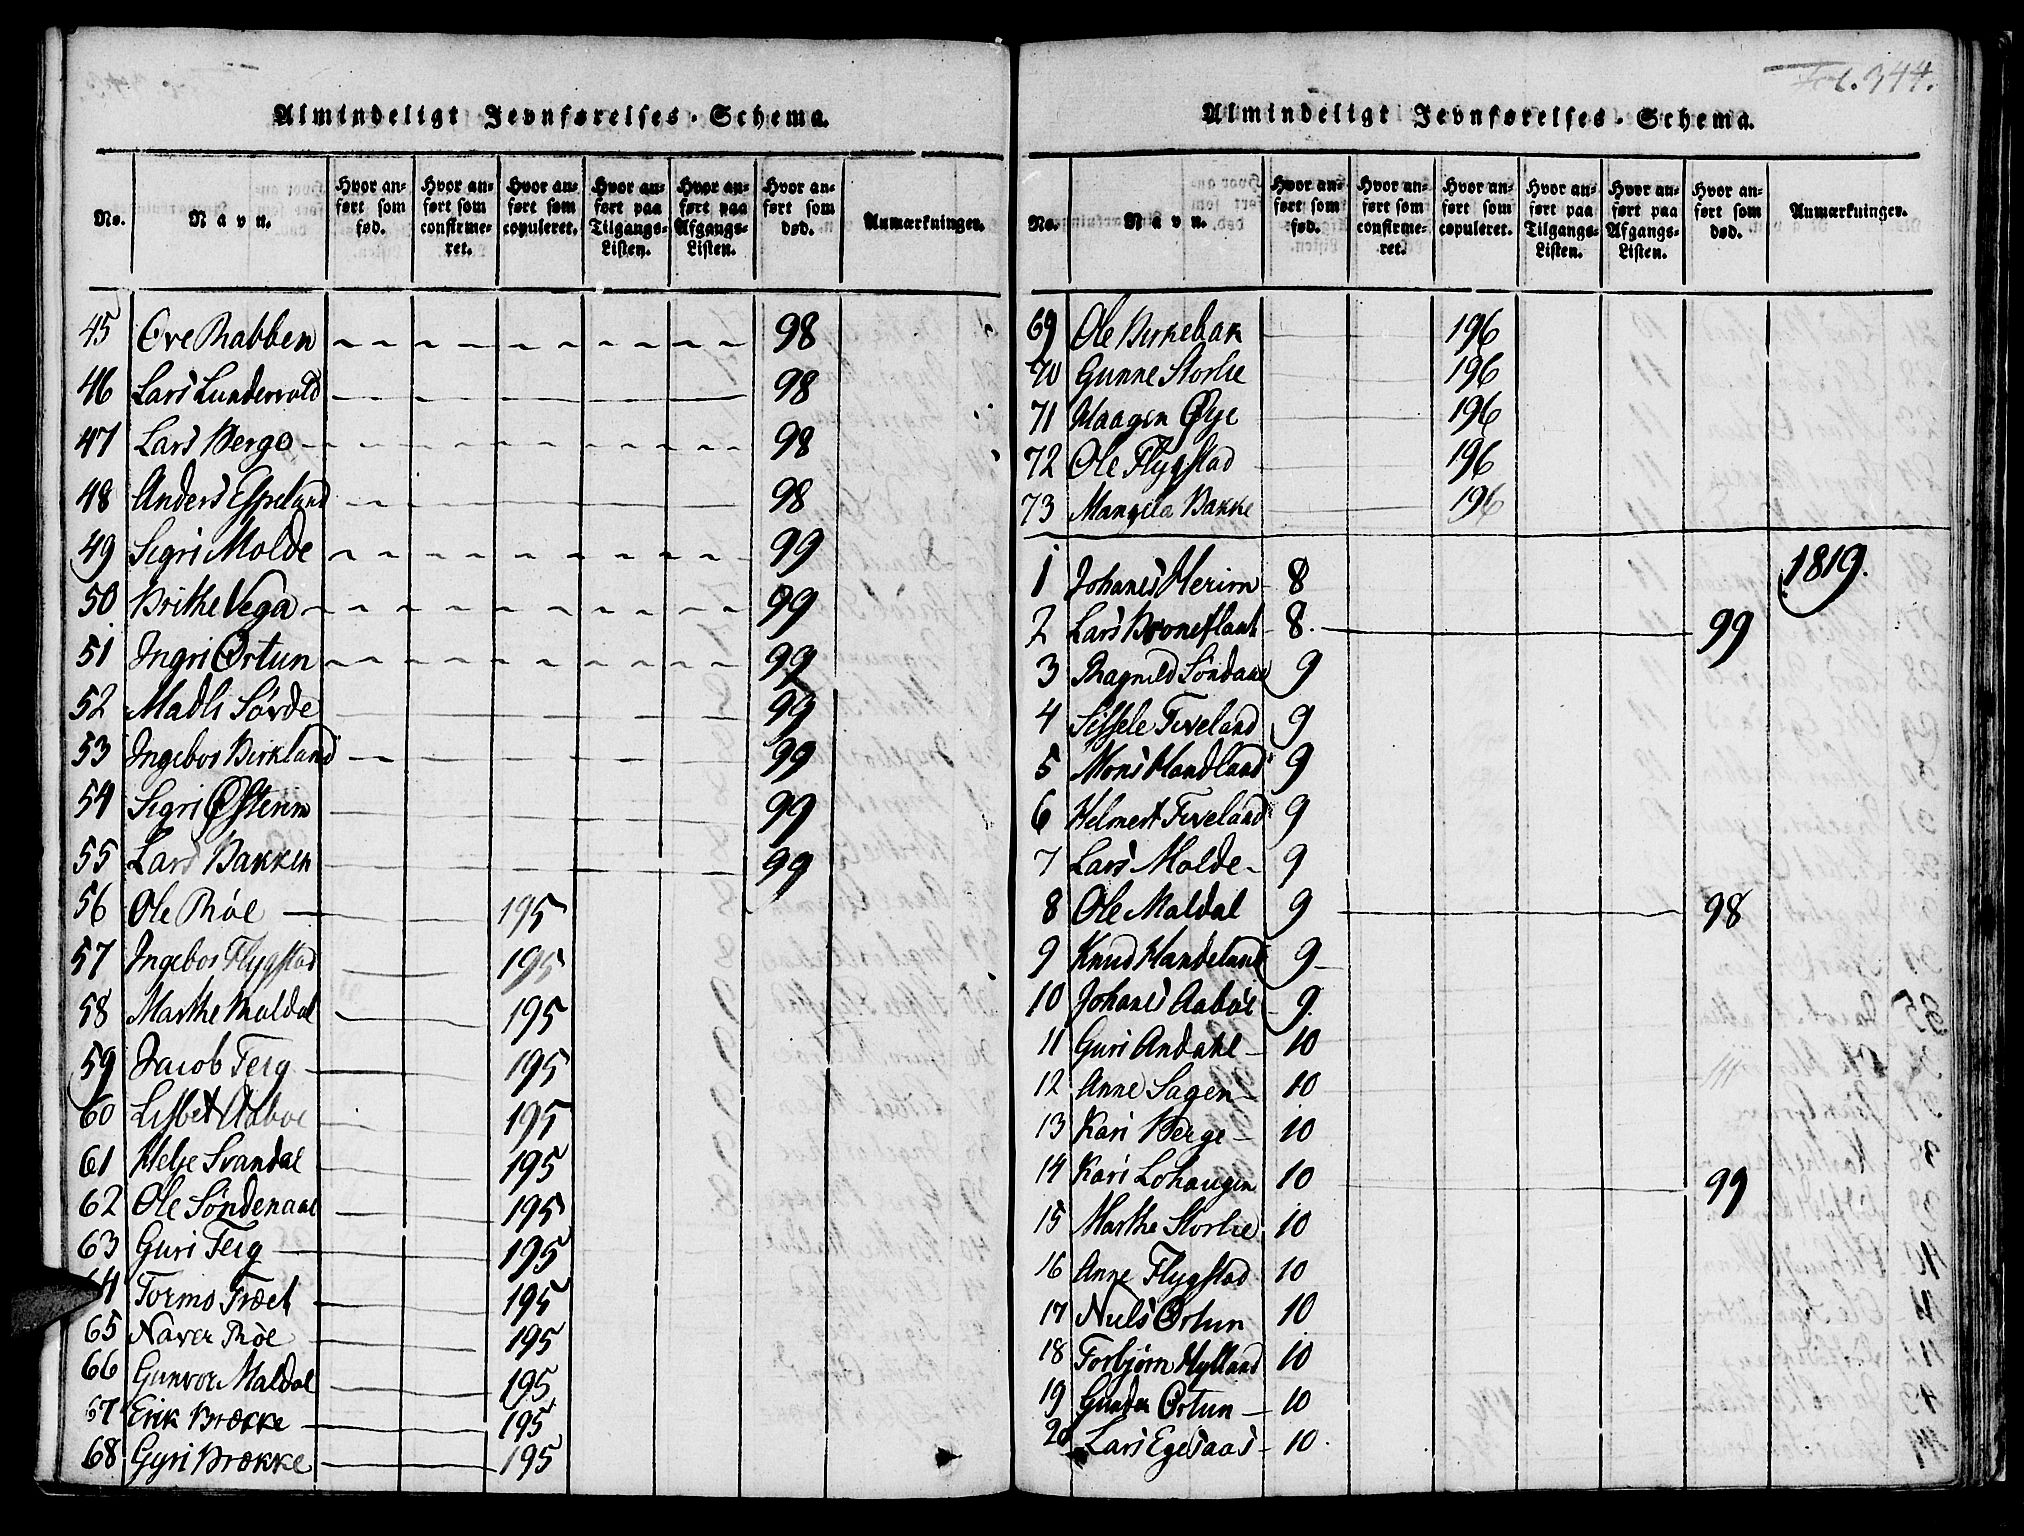 Almindeligt Jevnførelses-Schema.
No. Navn. Hvor anført som fød. Hvor anført som confirmeret. Hvor anført som copuleret. Hvor anført paa Tilgangs-Listen. Hvor anført paa Afgangs-Listen. Hvor anført som død. Anmærkninger.
45 Ove Rabben 98
46 Lars Lundervold 98
47 Lars Berge 98
48 Anders Espeland 98
49 Sigri Molde 99
50 Brithe Vega 99
51 Ingri Ortun 99
52 Madli Sørde 99
53 Ingebor Birkland 99
54 Sigri Østerim 99
55 Lars Bakken 99
56 Ole Røe 195
57 Ingebor Flygstad 195
58 Marthe Maldal 195
59 Jacob Teig 195
60 Lisbet Aaboe 195
61 Helje Svandal 195
62 Ole Søndenaae 195
63 Guri Teig 195
64 Tormo Træet 195
65 Naver Røe 195
66 Gunvor Maldal 195
67 Erik Brække 195
68 Gyri Brække 195
Fol. 344.
Almindeligt Jevnførelses-Schema.
No. Navn. Hvor anført som fød. Hvor anført som confirmeret. Hvor anført som copuleret. Hvor anført paa Tilgangs-Listen. Hvor anført paa Afgangs-Listen. Hvor anført som død. Anmærkninger.
69 Ole Birkebak 196
70 Gunne Storlie 196
71 Haagen Øye 196
72 Ole Flygstad 196
73 Mangela Bakke 196
1819.
1 Johanes Herim 8
2 Lars Broneflaat 8. 99
3 Ragnild Søndaae 9
4 Sissele Tveland 9
5 Mons Handland 9
6 Helmert Tveland 9
7 Lars Molde 9
8 Ole Maldal 9 98
9 Knud Handeland 9
10 Johanes Aaboe 9
11 Guri Andahl 10
12 Anne Sagen 10
13 Kari Berge 10
14 Kari Lohaugen 10 99
15 Marthe Storlie 10
16 Anne Flygstad 10
17 Niels Ortun 10
18 Torbjørn Hylland 10
19 Gunder Ortun 10
20 Lars Egesaas 10